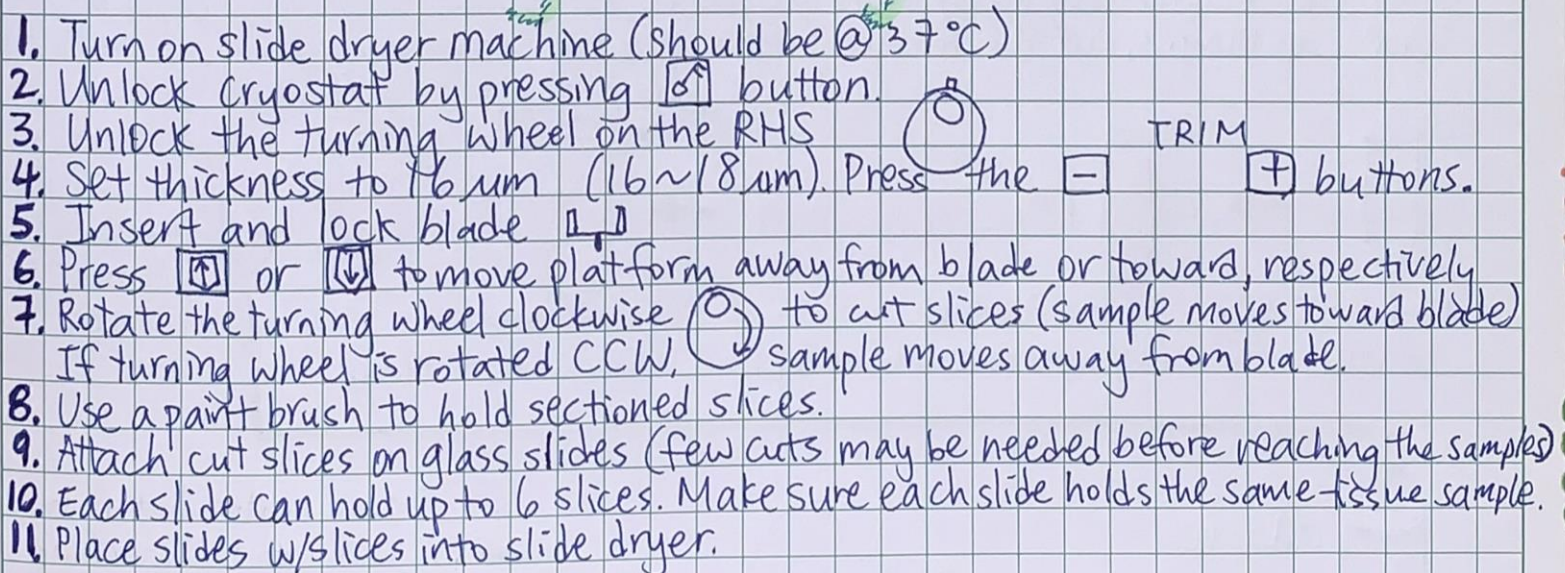 1. Turn on slide dryer machine (should be @ 37°C)
2. Unlock cryostat by pressing button.
3. Unlock the turning wheel on the RHS
TRIM
4. Set thickness to 16 μm (16~18 μm). Press the - + buttons.
5. Insert and lock blade
6. Press ↑ or ↓ to move platform away from blade or toward, respectively
7. Rotate the turning wheel clockwise to cut slices (sample moves toward blade)
If turning wheel is rotated CCW, sample moves away from blade.
8. Use a paint brush to hold sectioned slices.
9. Attach cut slices on glass slides (few cuts may be needed before reaching the samples)
10. Each slide can hold up to 6 slices. Make sure each slide holds the same tissue sample.
11. Place slides w/slices into slide dryer.